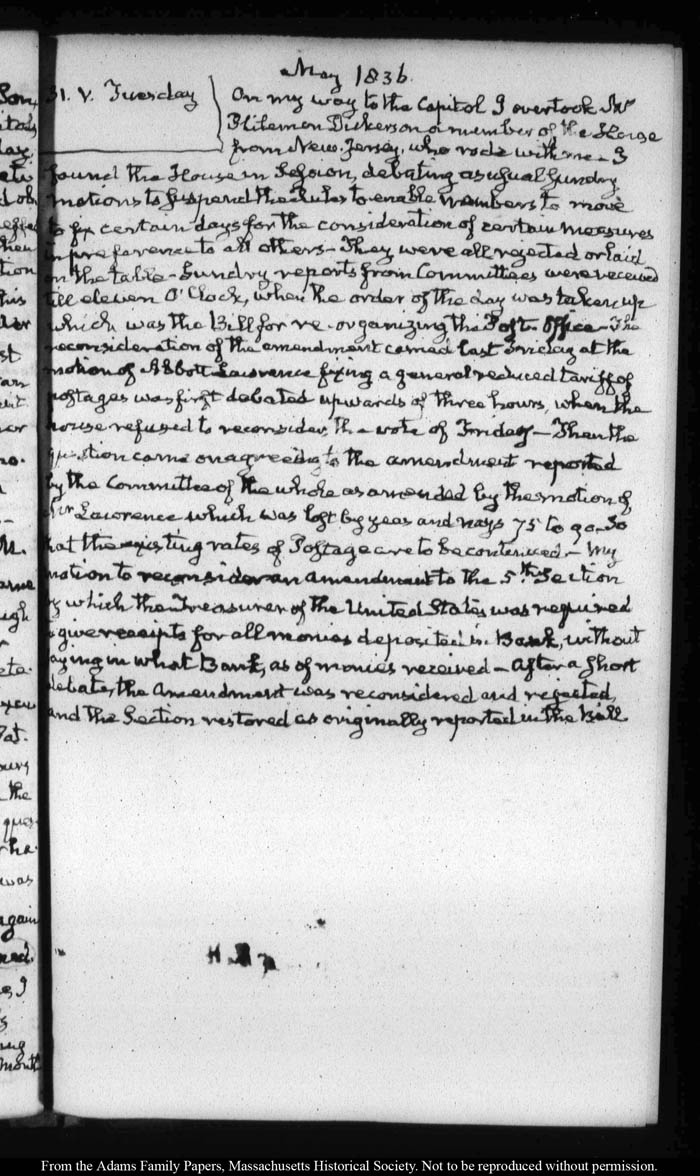 May 1836.
31. V. Tuesday
On my way to the Capitol I overtook Mr
Philemon Dickerson a member of the House
from New-Jersey, who rode with me. I
found the House in Session, debating as usual Sundry
motions to suspend the rules to enable members to move
to fix certain days for the consideration of certain measures
in preference to all others. They were all rejected or laid
on the table. Sundry reports from Committees were received
till eleven O'Clock, when the order of the day was taken up
which was the Bill for re-organizing the Post-Office. The
reconsideration of the amendment carried last Friday at the
motion of Abbott Lawrence fixing a general reduced tariff of
postages was first debated upwards of three hours, when the
house refused to reconsider the vote of Friday — Then the
question came on agreeing to the amendment reported
by the Committee of the whole as amended by the motion of
Mr Lawrence which was lost by yeas and nays 75 to 90. So
that the existing rates of Postage are to be continued. — My
motion to reconsider an amendment to the 5th Section
by which the Treasurer of the United States was required
to give receipts for all monies deposited in Bank, without
saying in what Bank, as of monies received — After a short
debate, the amendment was reconsidered and rejected,
and the Section restored as originally reported in the Bill
From the Adams Family Papers, Massachusetts Historical Society. Not to be reproduced without permission.